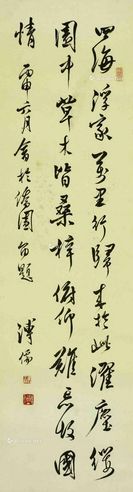 四海浮家萬里行歸來於此濯塵纓
園中草木皆桑梓俯仰難忘故國
情 丙申六月會於僑園留題
溥儒